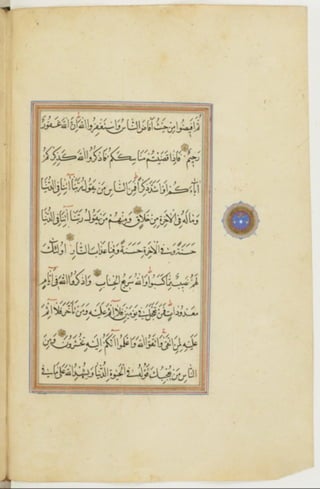 ثُمَّ اَفِيضُوا مِنْ حَيْثُ اَفَاضَ النَّاسُ وَاسْتَغْفِرُوا اللهَ اِنَّ اللهَ غَفُورٌ
رَحِيمٌ فَاِذَا قَضَيْتُمْ مَنَاسِكَكُمْ فَاذْكُرُوا اللهَ كَذِكْرِكُمْ
آبَاءَكُمْ اَوْ اَشَدَّ ذِكْرًا فَمِنَ النَّاسِ مَنْ يَقُولُ رَبَّنَا آتِنَا فِي الدُّنْيَا
وَمَا لَهُ فِي الْآخِرَةِ مِنْ خَلَاقٍ وَمِنْهُمْ مَنْ يَقُولُ رَبَّنَا آتِنَا فِي الدُّنْيَا
حَسَنَةً وَفِي الْآخِرَةِ حَسَنَةً وَقِنَا عَذَابَ النَّارِ اُولٰئِكَ
لَهُمْ نَصِيبٌ مِمَّا كَسَبُوا وَاللهُ سَرِيعُ الْحِسَابِ وَاذْكُرُوا اللهَ فِي اَيَّامٍ
مَعْدُودَاتٍ فَمَنْ تَعَجَّلَ فِي يَوْمَيْنِ فَلَا اِثْمَ عَلَيْهِ وَمَنْ تَأَخَّرَ فَلَا اِثْمَ
عَلَيْهِ لِمَنِ اتَّقٰى وَاتَّقُوا اللهَ وَاعْلَمُوا اَنَّكُمْ اِلَيْهِ تُحْشَرُونَ وَمِنَ
النَّاسِ مَنْ يُعْجِبُكَ قَوْلُهُ فِي الْحَيٰوةِ الدُّنْيَا وَيُشْهِدُ اللهَ عَلٰى مَا فِي